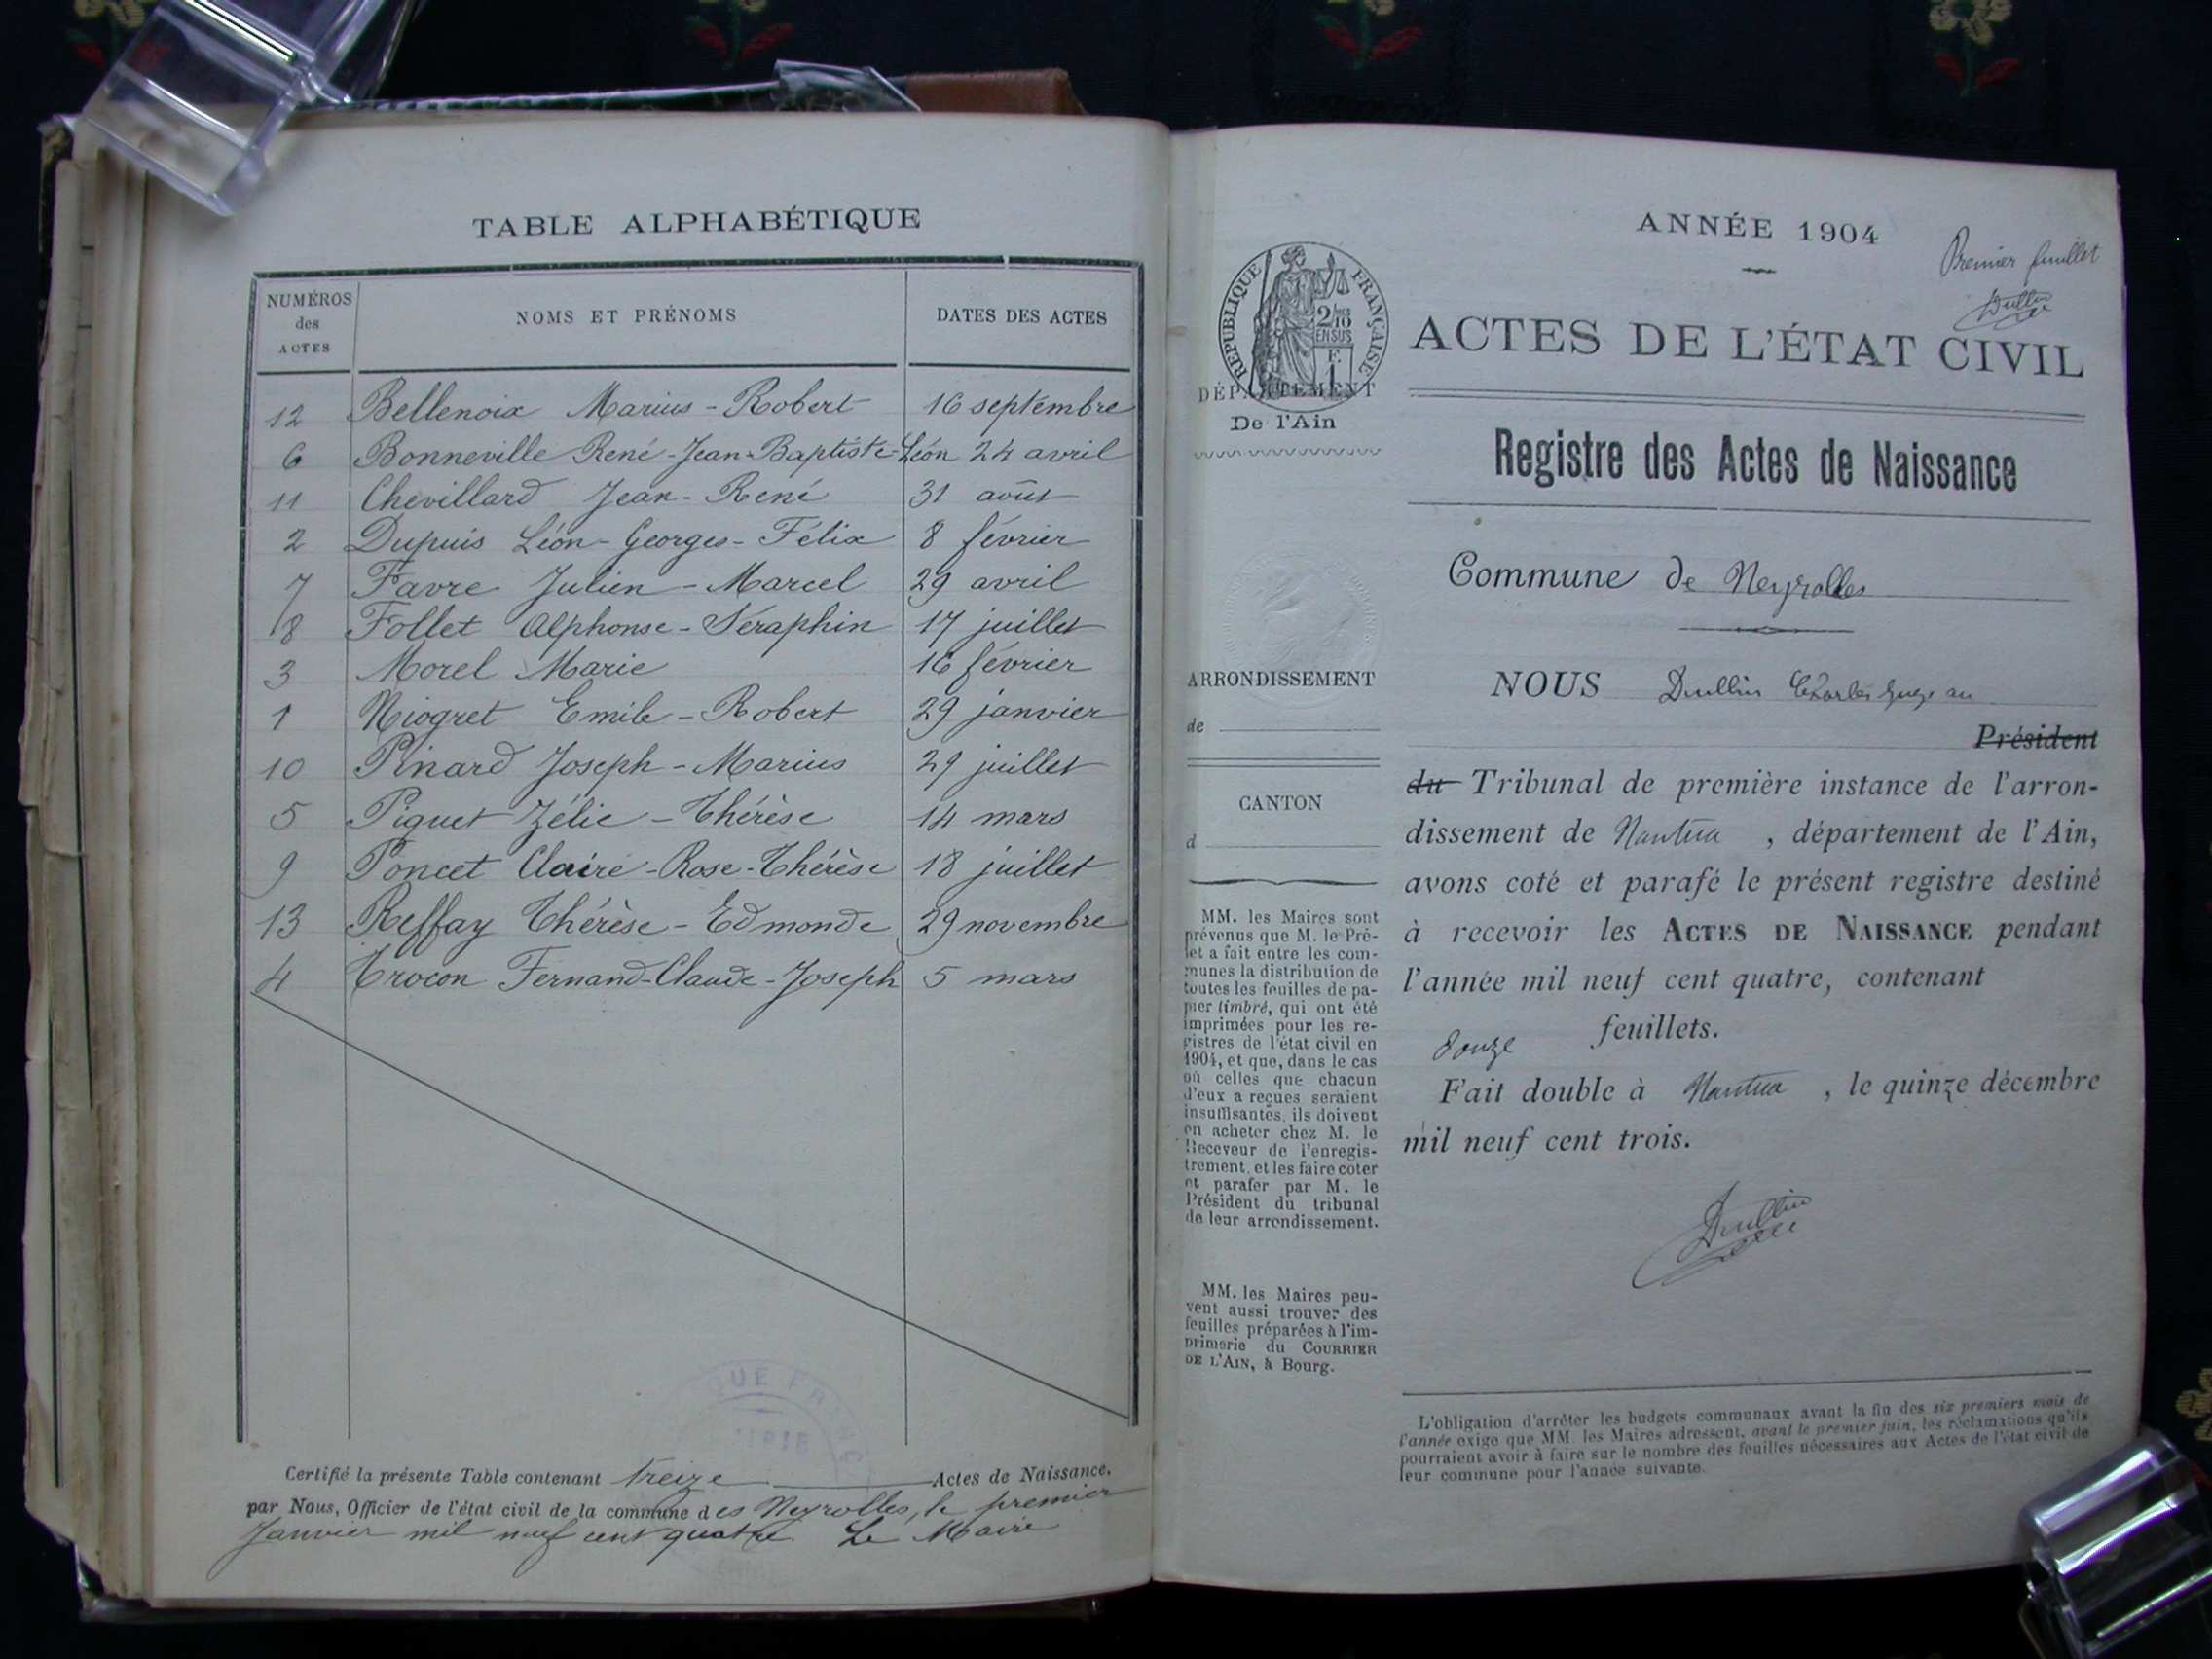 TABLE ALPHABÉTIQUE
NUMÉROS
des
ACTES
NOMS ET PRÉNOMS
DATES DES ACTES
12 Bellenoix Marius-Robert 16 septembre
6 Bonneville René-Jean-Baptiste-Léon 24 avril
11 Chevillard Jean-René 31 août
2 Dupuis Léon-Georges-Félix 8 février
7 Favre Julien-Marcel 29 avril
8 Follet Alphonse-Séraphin 17 juillet
3 Morel Marie 16 février
1 Niogret Emile-Robert 29 janvier
10 Pinard Joseph-Marius 29 juillet
5 Piquet Zélie-Thérèse 14 mars
9 Poncet Claire-Rose-Thérèse 18 juillet
13 Reffay Thérèse-Edmonde 29 novembre
4 Crocon Fernand-Claude-Joseph 5 mars
Certifié la présente Table contenant treize Actes de Naissance.
par Nous, Officier de l'état civil de la commune des Neyrolles, le premier
Janvier mil neuf cent quatre. Le Maire
ANNÉE 1904
Premier feuillet
Dullin
ACTES DE L'ÉTAT CIVIL
RÉPUBLIQUE FRANÇAISE
2/10
EN SUS
F.
1
DÉPARTEMENT
De l'Ain
Registre des Actes de Naissance
Commune de Neyrolles
ARRONDISSEMENT
de
NOUS Dullin Charles
Président
du Tribunal de première instance de l'arron-
dissement de Nantua, département de l'Ain,
avons coté et parafé le présent registre destiné
à recevoir les ACTES DE NAISSANCE pendant
l'année mil neuf cent quatre, contenant
douze feuillets.
Fait double à Nantua, le quinze décembre
mil neuf cent trois.
Dullin
CANTON
d
MM. les Maires sont
prévenus que M. le Pré-
fet a fait entre les com-
munes la distribution de
toutes les feuilles de pa-
pier timbré, qui ont été
imprimées pour les re-
gistres de l'état civil en
1904, et que, dans le cas
où celles que chacun
d'eux a reçues seraient
insuffisantes, ils doivent
en acheter chez M. le
Receveur de l'enregis-
trement, et les faire coter
et parafer par M. le
Président du tribunal
de leur arrondissement.
MM. les Maires peu-
vent aussi trouver des
feuilles préparées à l'im-
primerie du COURRIER
DE L'AIN, à Bourg.
L'obligation d'arrêter les budgets communaux avant la fin des six premiers mois de
l'année exige que MM. les Maires adressent, avant le premier juin, les réclamations qu'ils
pourraient avoir à faire sur le nombre des feuilles nécessaires aux Actes de l'état civil de
leur commune pour l'année suivante.